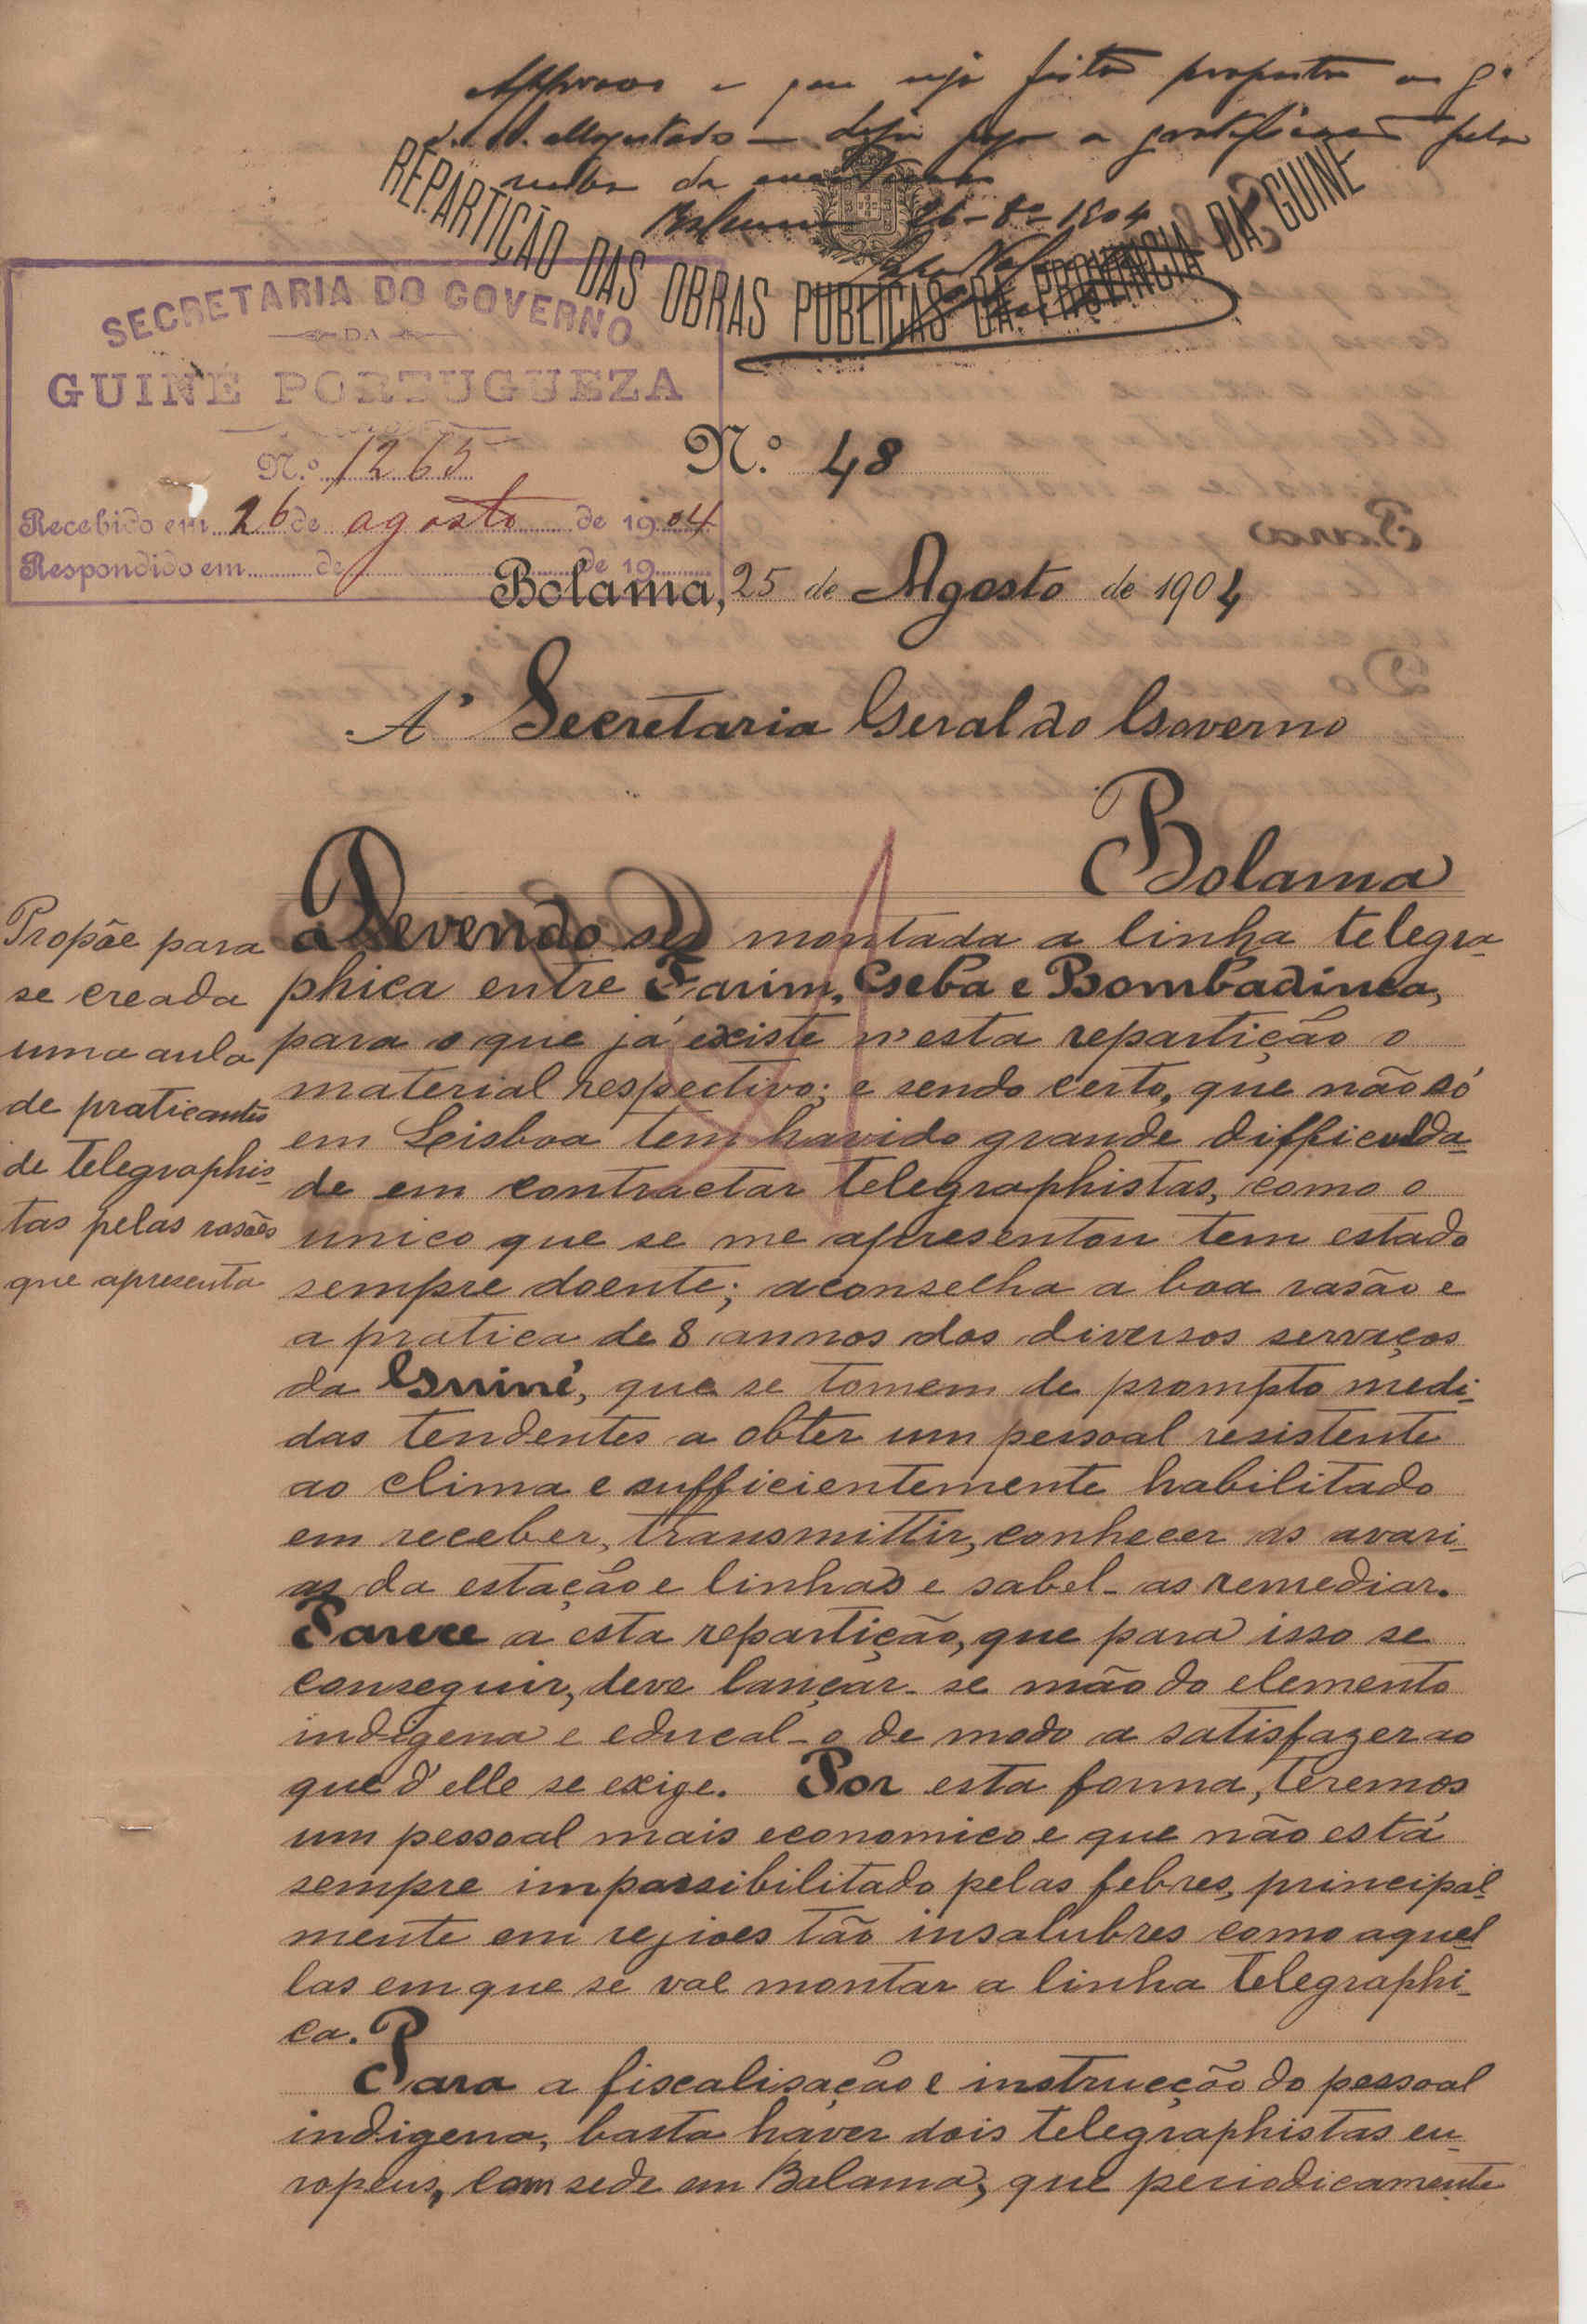 Approvo e que seja feita proposta
a gratificação pela
verba da
Bolama 26-8º-1904
REPARTIÇÃO DAS OBRAS PUBLICAS DA PROVINCIA DA GUINÉ
SECRETARIA DO GOVERNO
DA
GUINÉ PORTUGUEZA
N.º 1265
Recebido em 26 de agosto de 1904
Respondido em de de 19
N.º 48
Bolama, 25 de Agosto de 1904
A' Secretaria Geral do Governo
Bolama
Propõe para
se creada
uma aula
de praticantes
de telegraphis-
tas pelas rasões
que apresenta
Devendo ser montada a linha telegra-
phica entre Farim, Geba e Bambadinca,
para o que já existe n'esta repartição o
material respectivo; e sendo certo, que não só
em Lisboa tem havido grande difficulda-
de em contractar telegraphistas, como o
unico que se me apresentou tem estado
sempre doente; aconselha a boa rasão e
a pratica de 8 annos dos diversos serviços
da Guiné, que se tomem de prompto medi-
das tendentes a obter um pessoal resistente
ao clima e sufficientemente habilitado
em receber, transmittir, conhecer as avari-
as da estação e linhas e sabel-as remediar.
Parece a esta repartição, que para isso se
conseguir, deve lançar-se mão do elemento
indigena e educal-o de modo a satisfazer ao
que d'elle se exige. Por esta forma, teremos
um pessoal mais economico e que não está
sempre impossibilitado pelas febres, principal-
mente em rejiões tão insalubres como aquel-
las em que se vae montar a linha telegraphi-
ca.
Para a fiscalisação e instrucção do pessoal
indigena, basta haver dois telegraphistas eu-
ropeus, com sede em Bolama, que periodicamente